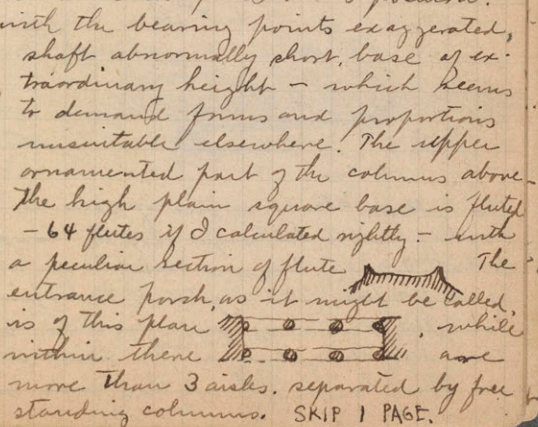 with the bearing points exaggerated,
shaft abnormally short, base of ex-
traordinary height - which seems
to demand forms and proportions
unsuitable elsewhere. The upper
ornamented part of the columns above
the high plain square base is fluted
- 64 flutes if I calculated rightly - with
a peculiar section of flute The
entrance porch, as it might be called,
is of this plan , while
within there are
more than 3 aisles. separated by free
standing columns. SKIP 1 PAGE.